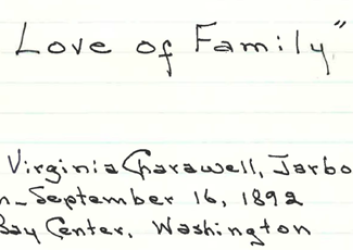 Love of Family"
Virginia Charawell, Jarbo
n-September 16, 1892
Bay Center, Washington